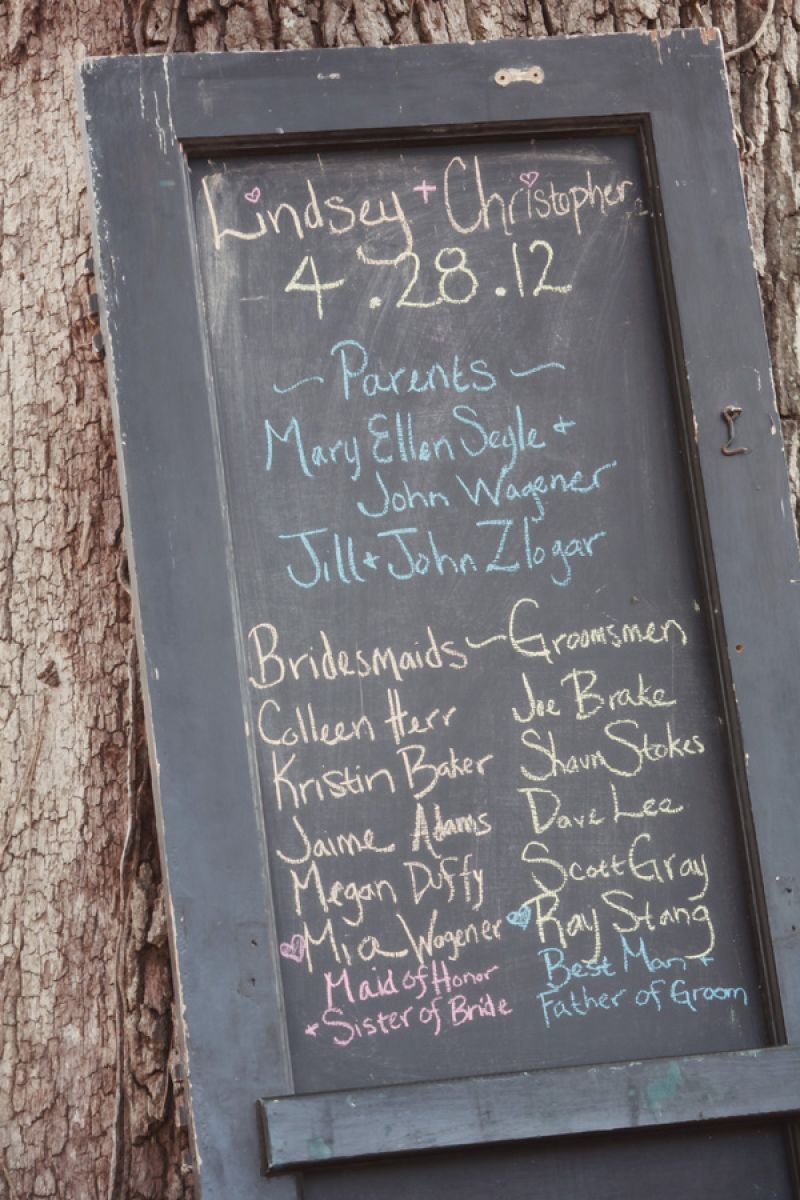 Lindsey + Christopher
4.28.12
~ Parents ~
Mary Ellen Seyle +
John Wagener
Jill + John Zlogar
Bridesmaids ~ Groomsmen
Colleen Herr Joe Brake
Kristin Baker Shawn Stokes
Jaime Adams Dave Lee
Megan Duffy Scott Gray
Mia Wagener Ray Stang
Maid of Honor Best Man +
+ Sister of Bride Father of Groom